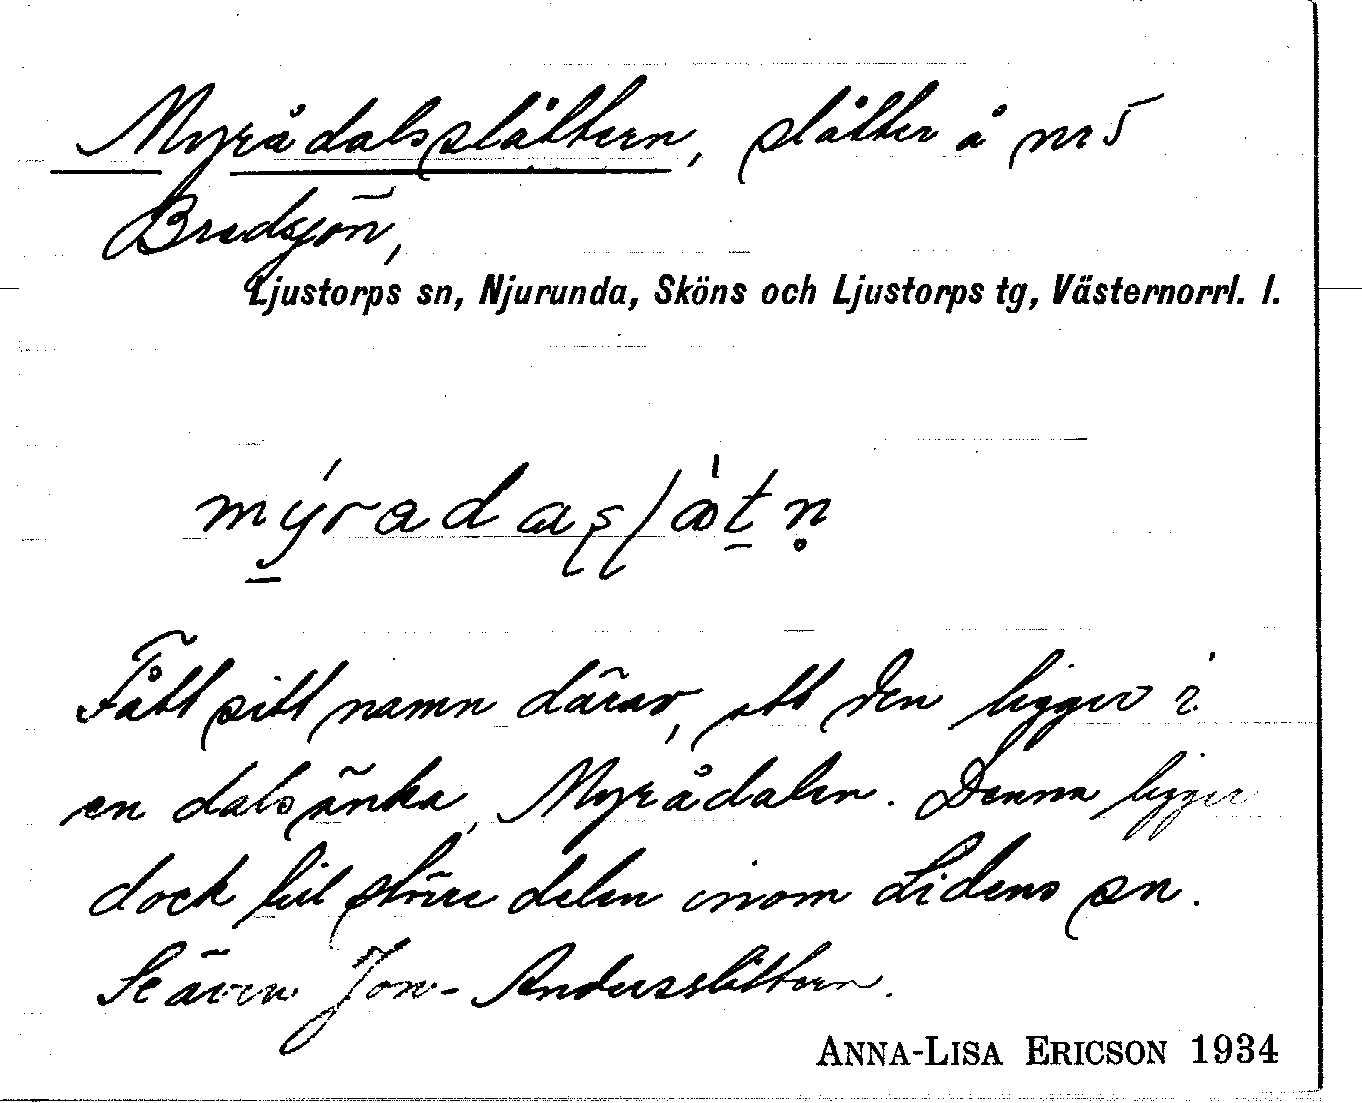 Myrådalsslåttern, slåtter å nr 5
Bredsjön,
Ljustorps sn, Njurunda, Sköns och Ljustorps tg, Västernorrl. l.
Fått sitt namn därav, att den ligger i
en dalsänka, Myrådalen. Denna ligger
dock till större delen inom Lidens sn.
Se även Jon-Andersslåttern.
ANNA-LISA ERICSON 1934